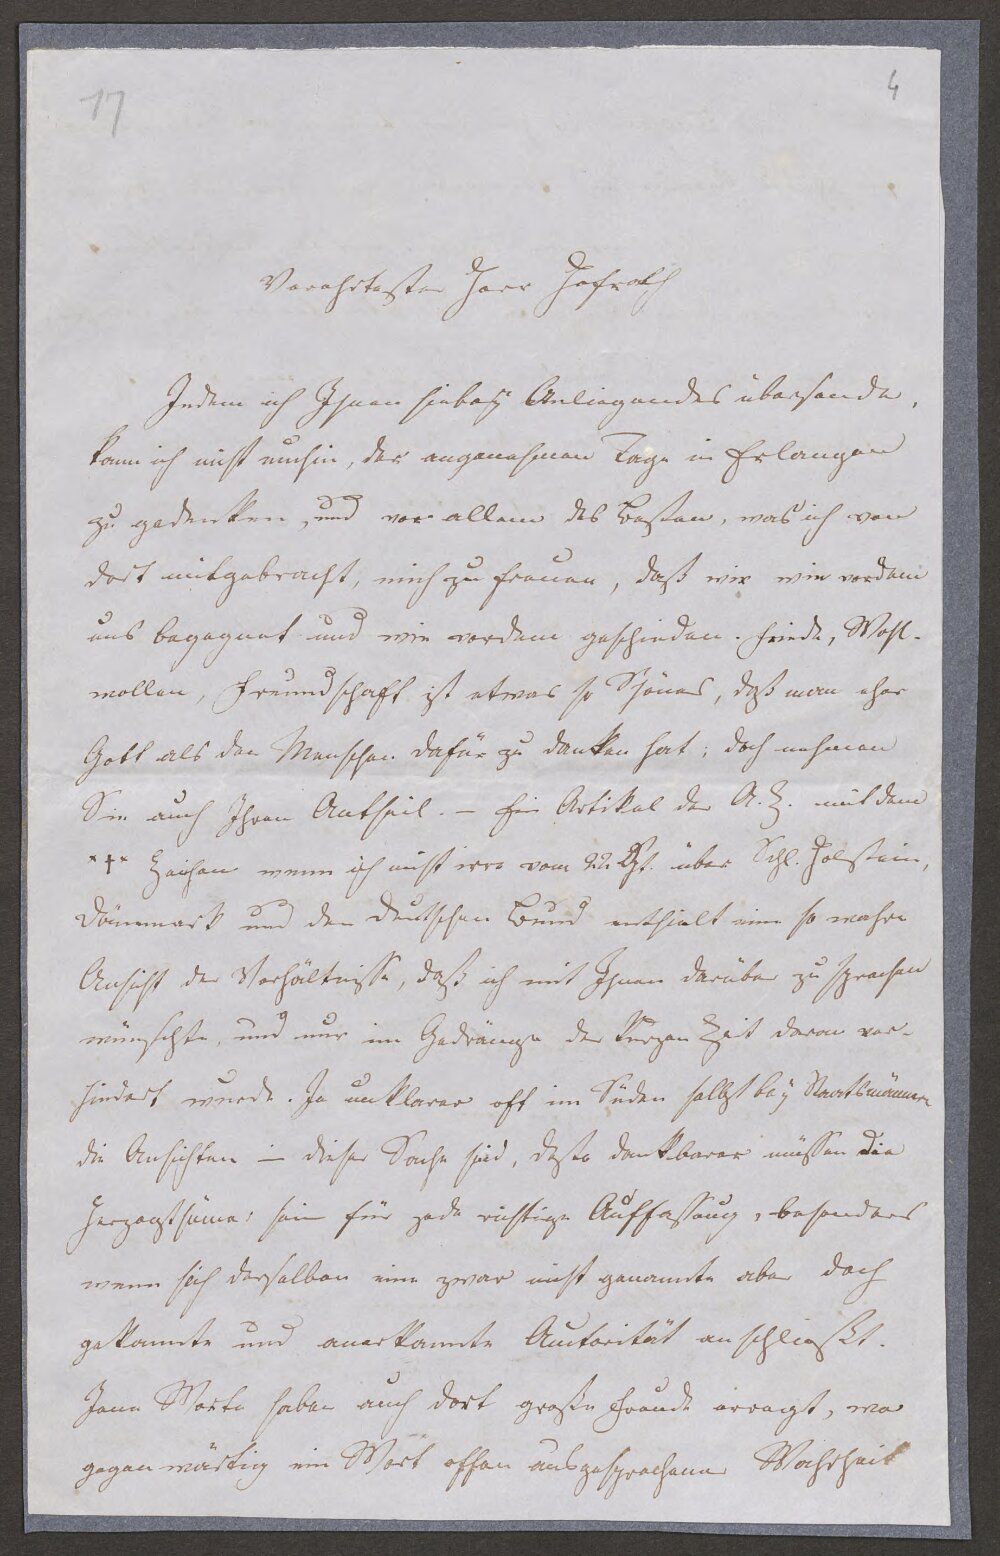 17
4
Verehrtester Herr Hofrath
Indem ich Ihnen hiebey Anliegendes übersende,
kann ich nicht umhin, der angenehmen Tage in Erlangen
zu gedenken, und vor allem des Besten, was ich von
dort mitgebracht, mich zu freuen, daß wir wie vordem
uns begegnet und wie vordem geschieden. Friede, Wohl-
wollen, Freundschaft ist etwas so Schönes, daß man eher
Gott als den Menschen dafür zu danken hat; doch nehmen
Sie auch Ihren Antheil. – Ein Artikel der A. Z. mit dem
*†* Zeichen wenn ich nicht irre vom 22. über Schl. Holstein,
Dännmark und den deutschen Bund enthielt eine so wahre
Ansicht der Verhältnisse, daß ich mit Ihnen darüber zu sprechen
wünschte, und nur im Gedränge der kurzen Zeit daran ver-
hindert wurde. Je unklarer oft im Süden selbst bey Staatsmännern
die Ansichten – dieser Sache sind, desto dankbarer müssen die
Herzogthümer sein für jede richtige Auffassung, besonders
wenn sich derselben eine zwar nicht genannte aber doch
gekannte und anerkannte Autorität anschließt.
Jene Worte haben auch dort große Freude erregt, wo
gegenwärtig ein Wort offen ausgesprochener Wahrheit